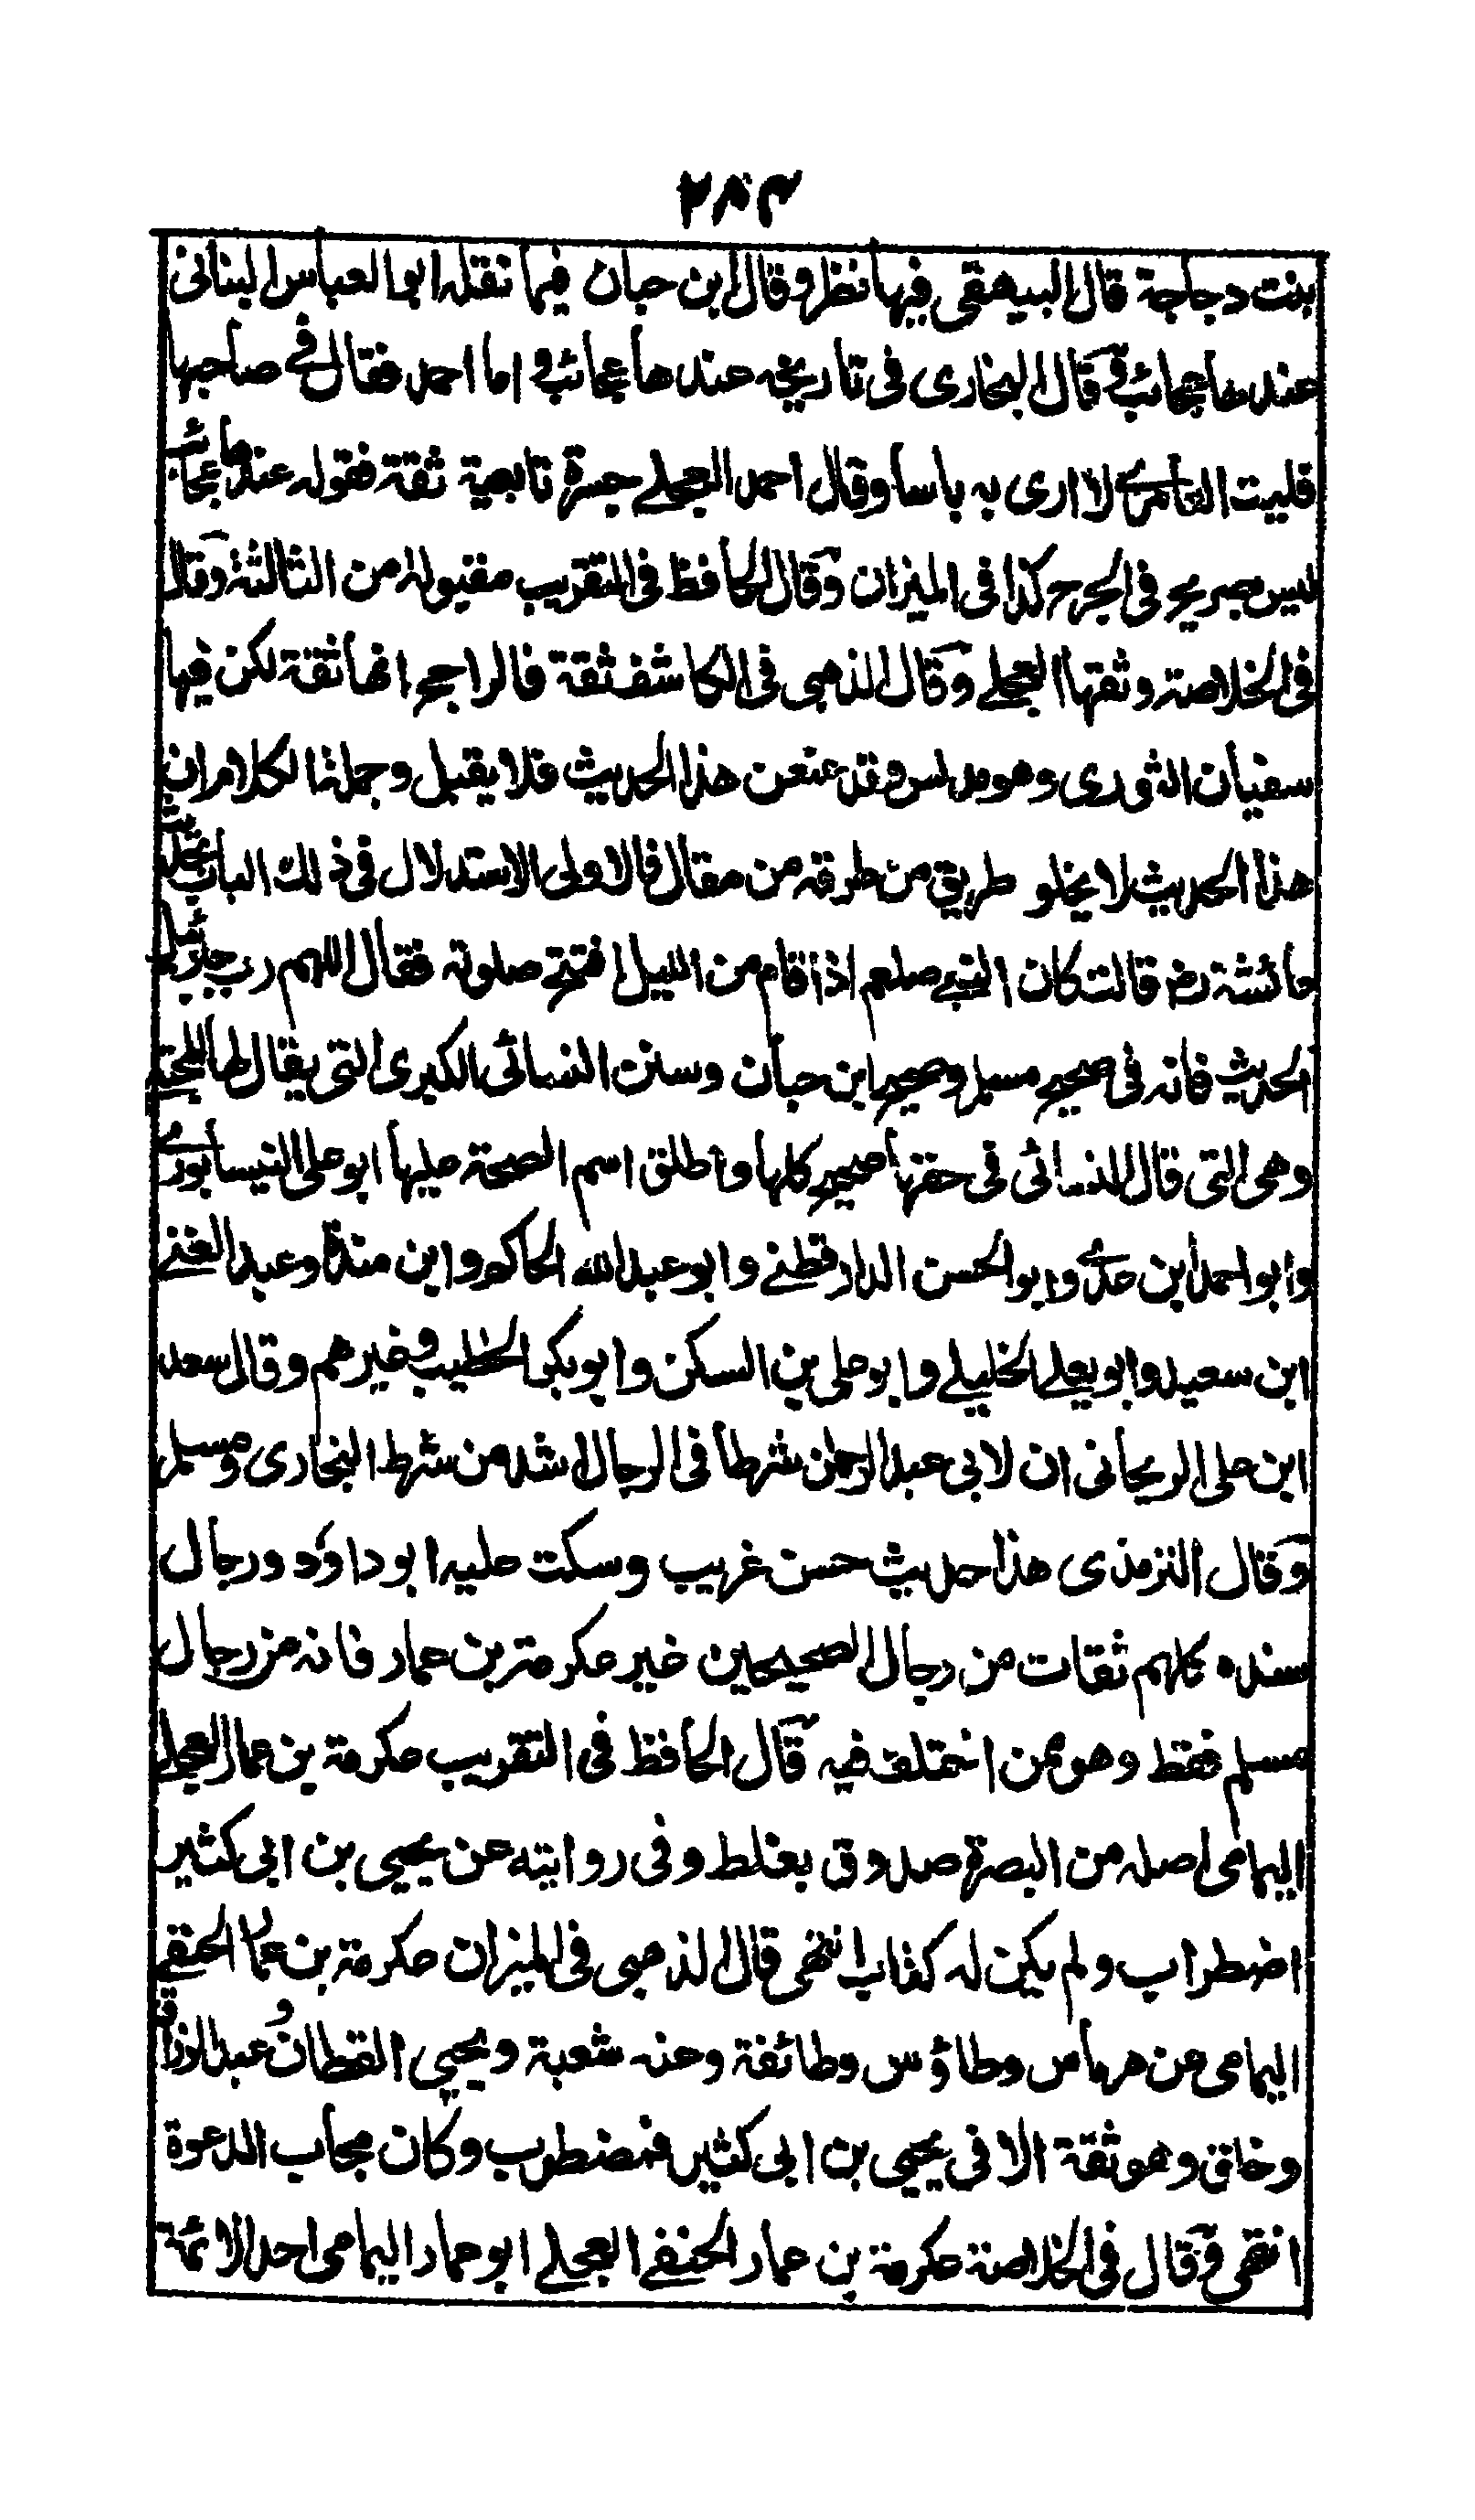 ٢٨٣
بنت دجاجة قال البيهقي فيها نظر وقال ابن حبان فيما نقله ابو العباس البناني
عندها عجائب وقال البخارى فى تاريخه عندها عجائب اما احمد فقال فى صاحبها
فليت العامرى لا ارى به باسا وقال احمد العجلى جسرة تابعية ثقة فقوله عندها عجائب
ليس بصريح فى الجرح كذا فى الميزان وقال الحافظ فى التقريب مقبولة من الثالثة وقال
فى الخلاصة وثقها العجلى وقال الذهبى فى الكاشف ثقة فالراجح انها ثقة لكن فيها
سفيان الثورى وهو مدلس وقد عنعن هذا الحديث فلا يقبل وجملة الكلام ان
هذا الحديث لا يخلو طريق من طرقه من مقال فالاولى الاستدلال فى ذلك الباب بحديث
عائشة رض قالت كان النبى صلعم اذا قام من الليل افتتح صلوته فقال اللهم رب جبرئيل
الحديث فانه فى صحيح مسلم وصحيح ابن حبان وسنن النسائى الكبرى التى يقال لها المجتبى
وهى التى قال النسائى فى حقها صحيح كلها واطلق اسم الصحة عليها ابو على النيسابورى
وابو احمد ابن عدى وابو الحسن الدارقطنى وابو عبد الله الحاكم وابن مندة وعبد الغنى
ابن سعيد وابو يعلى الخليلى وابو على بن السكن وابو بكر الخطيب وغيرهم وقال سعد
ابن على الريحانى ان لابى عبد الرحمن شرطا فى الرجال اشد من شرط البخارى ومسلم
وقال الترمذى هذا حديث حسن غريب وسكت عليه ابو داؤد ورجال
سنده كلهم ثقات من رجال الصحيحين غير عكرمة بن عمار فانه من رجال
مسلم فقط وهو ممن اختلف فيه قال الحافظ فى التقريب عكرمة بن عمار العجلى
اليمامى اصله من البصرة صدوق يغلط وفى روايته عن يحيى بن ابى كثير
اضطراب ولم يكن له كتاب انتهى قال الذهبى فى الميزان عكرمة بن عمار الحنفى
اليمامى عن هرماس وطاؤس وطائفة وعنه شعبة ويحيى القطان وعبد الرزاق
وخلق وهو ثقة الا فى يحيى بن ابى كثير فمضطرب وكان مجاب الدعوة
انتهى وقال فى الخلاصة عكرمة بن عمار الحنفى العجلى ابو عمار اليمامى احد الائمة